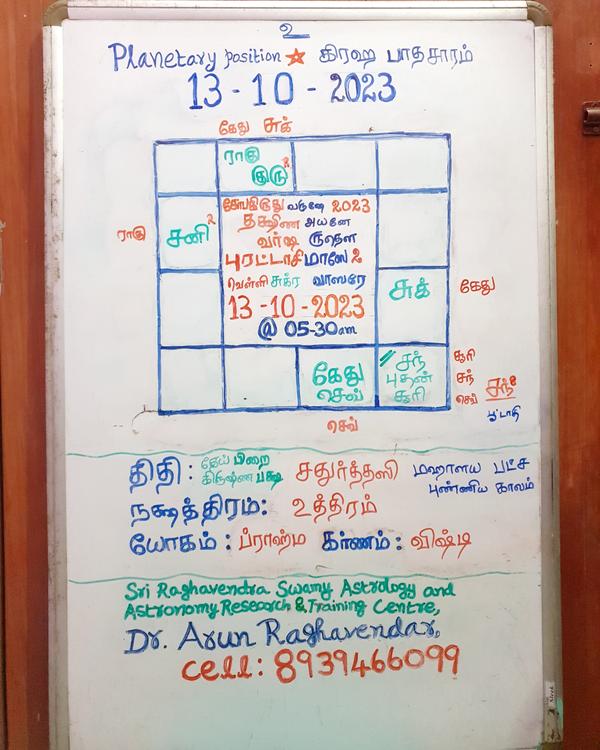 உ
Planetary position ☆ கிரஹ பாதசாரம்
13 - 10 - 2023
கேது சுக்
ராகு
குரு २
ராகு
சனி २
சோபகிருது வருஷே 2023
தக்ஷிண அயனே
வர்ஷ ருதௌ
புரட்டாசி மாஸே
வெள்ளி சுக்ர வாஸரே
13 - 10 - 2023
@ 05-30am
சுக்
கேது
கேது
செவ்
சந்
புதன்
சூரி
சூரி
சந்
செவ்
சந் 8
பூட்டாதி
செவ்
திதி : தேய் பிறை
கிருஷ்ண பக்ஷ
சதுர்த்தஸி
மஹாளய பட்ச
புண்ணிய காலம்
நக்ஷத்திரம்: உத்திரம்
யோகம் : ப்ராஹ்ம கர்ணம் : விஷ்டி
Sri Raghavendra Swamy Astrology and
Astronomy Research & Training Centre,
Dr. Arun Raghavendar,
cell: 8939466099